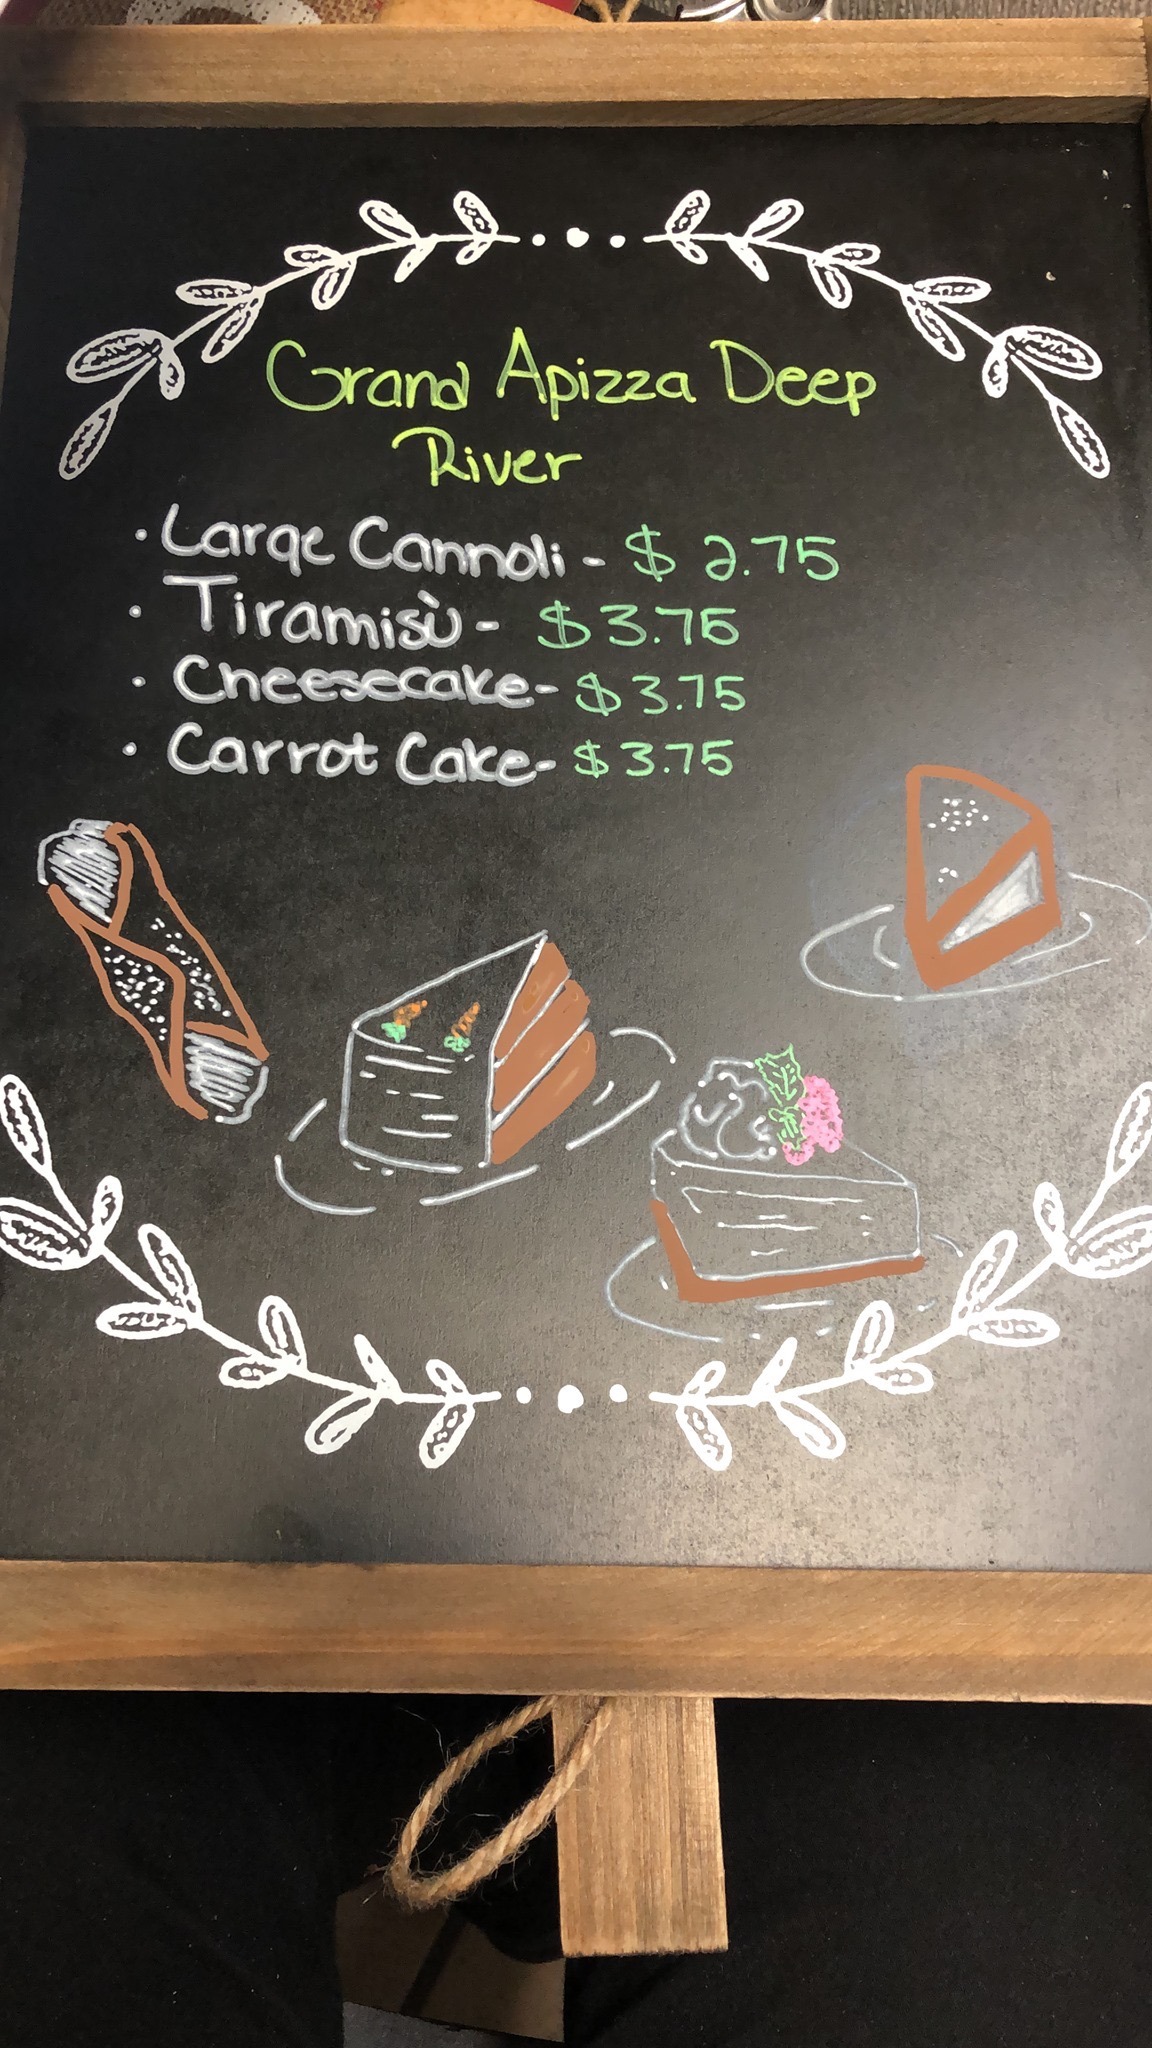 Grand Apizza Deep
River
· Large Cannoli - $ 2.75
· Tiramisù - $3.75
· Cheesecake - $3.75
· Carrot Cake - $3.75